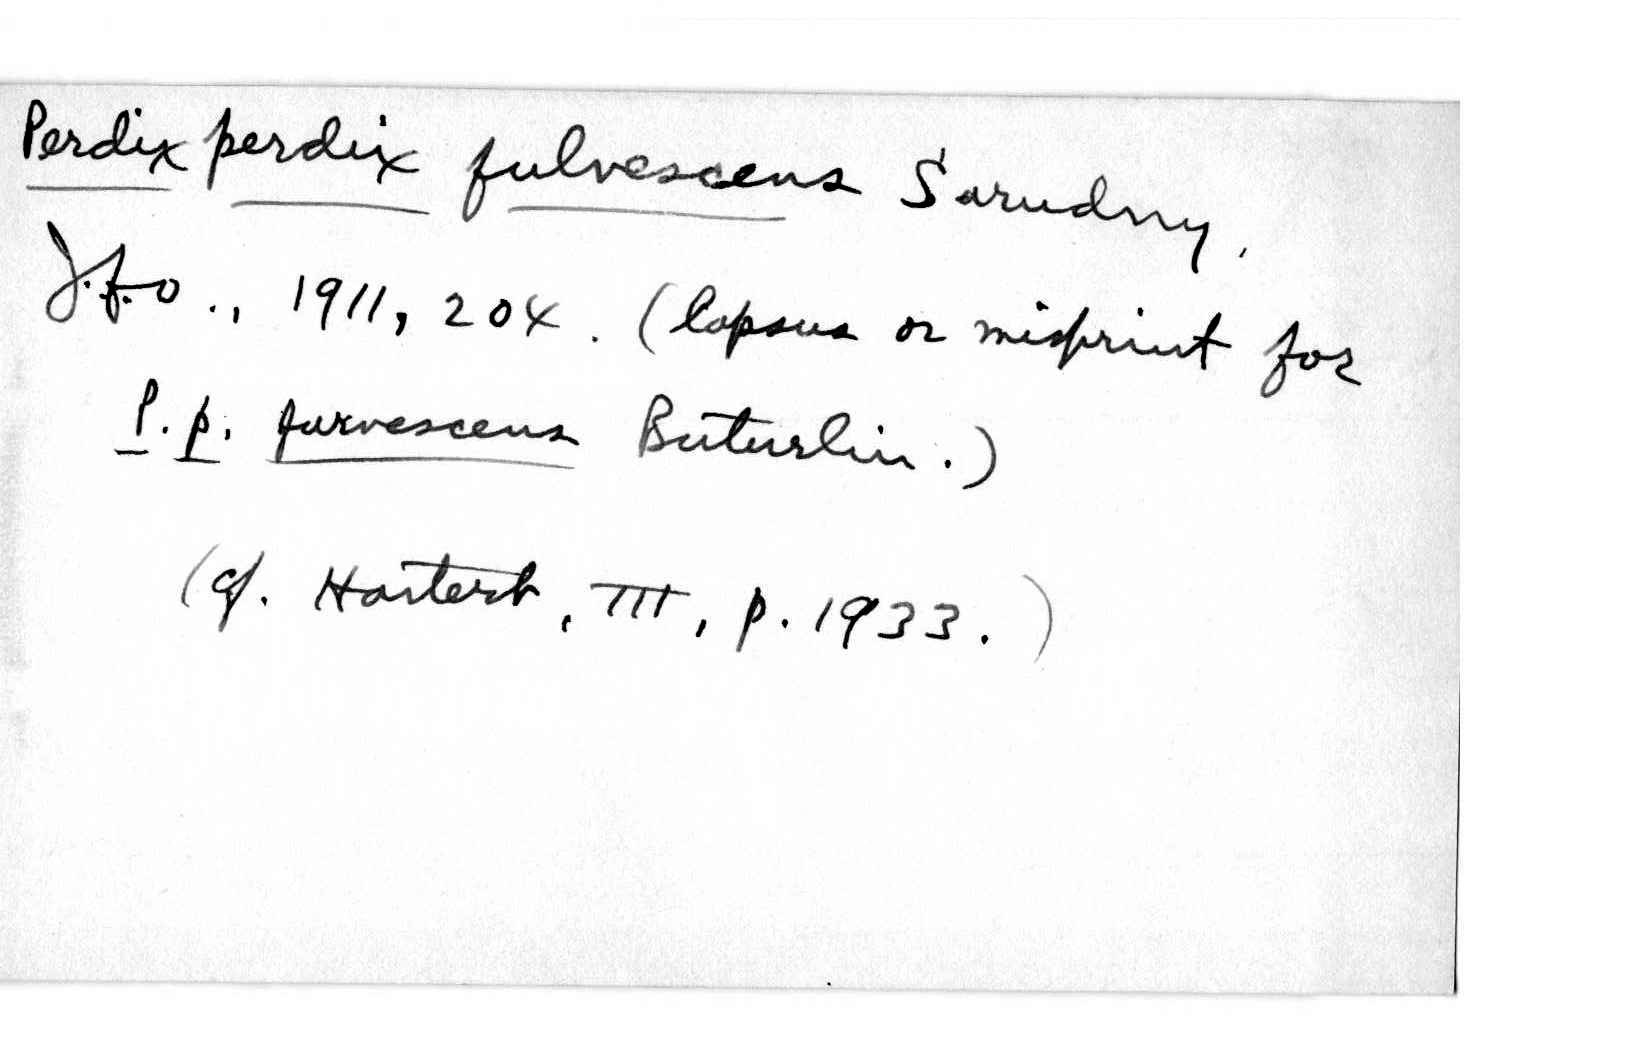 Perdix perdix fulvescens Sarudny,
J.f.o., 1911, 204. (lapsus or misprint for
P. p. furvescens Buturlin.)
(cf. Hartert, III, p. 1933.)